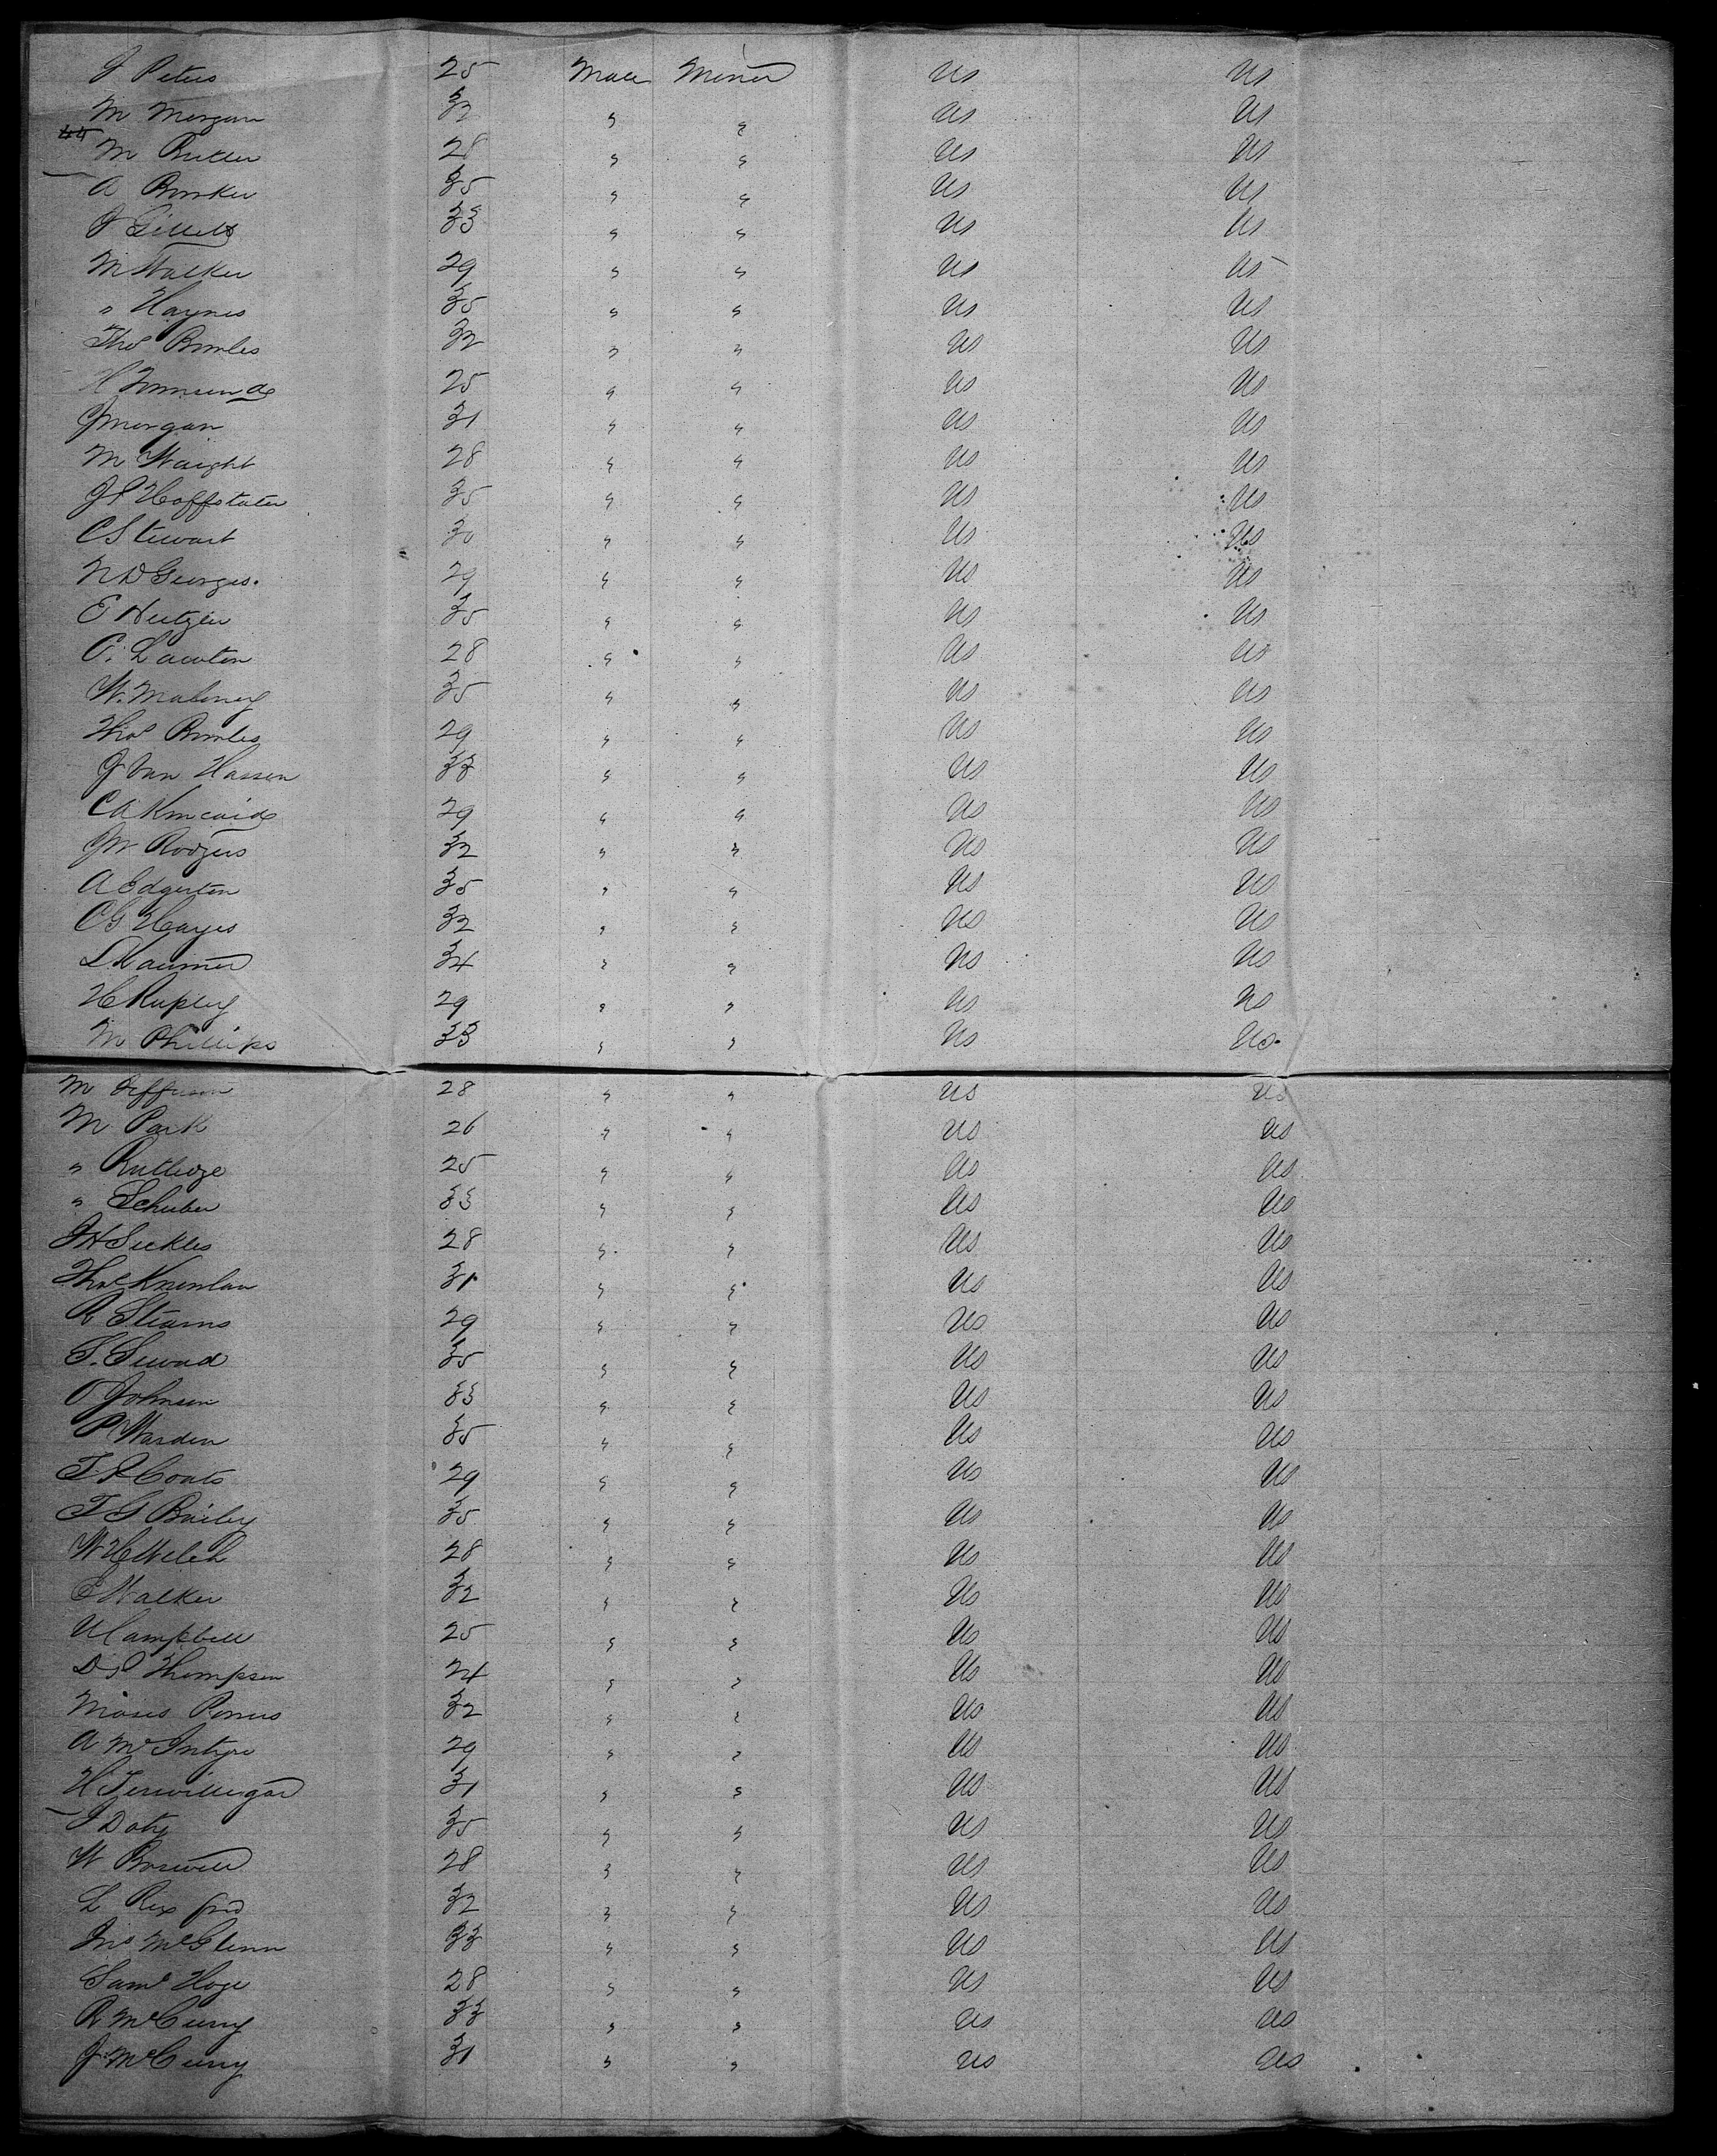 J Peters 25 Male Miner US US
M Morgan 32 " " US US
44
M Butler 28 " " US US
A Booker 35 " " US US
J Gillett 33 " " US US
M Walker 29 " " US US
" Haynes 35 " " US US
Thos Bowles 32 " " US US
H Townsend 25 " " US US
J Morgan 31 " " US US
M Waight 28 " " US US
J P Hoffstater 35 " " US US
C Stewart 30 " " US US
N D Georges. 29 " " US US
E Hertzler 35 " " US US
C. Lawton 28 " " US US
W. Maloney 35 " " US US
Thos Bowles 29 " " US US
J Van Hassen 33 " " US US
C A Kincaid 29 " " US US
J W Rodgers 32 " " US US
A Edgerton 35 " " US US
C G Hayes 32 " " US US
L 34 " " US US
H Rupley 29 " " US US
M Phillips 33 " " US US
M Jefferson 28 " " US US
M Park 26 " " US US
" Rutledge 25 " " US US
" Schuber 33 " " US US
J H Sickles 28 " " US US
Thos 31 " " US US
R Stearns 29 " " US US
S. Seward 35 " " US US
O Johnson 33 " " US US
P Warden 35 " " US US
T P Coats 29 " " US US
T G Bailey 35 " " US US
W H Welch 28 " " US US
E Walker 32 " " US US
U Campbell 25 " " US US
D P Thompson 24 " " US US
Moses 32 " " US US
A McIntyre 29 " " US US
H Terwilligar 31 " " US US
J Doty 35 " " US US
W Boswell 28 " " US US
L Rex ford 32 " " US US
Jno McGlenn 33 " " US US
Saml Hoge 28 " " US US
R McCurry 33 " " US US
J McCurry 31 " " US US